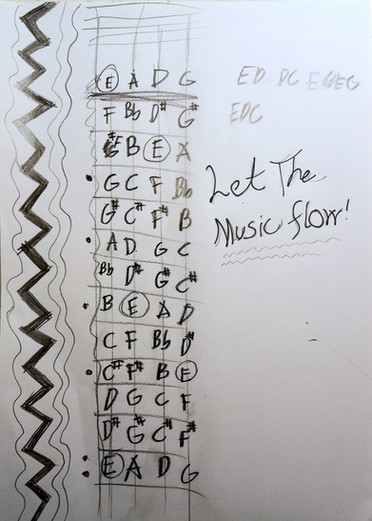 E A D G
F Bb D# G#
B E A
G C F Bb
G# C# F# B
A D G C
Bb D# G# C#
B E A D
C F Bb D#
C# F# B E
D G C F
D# G# C# F#
E A D G
ED DC
EDC
Let The
Music flow!